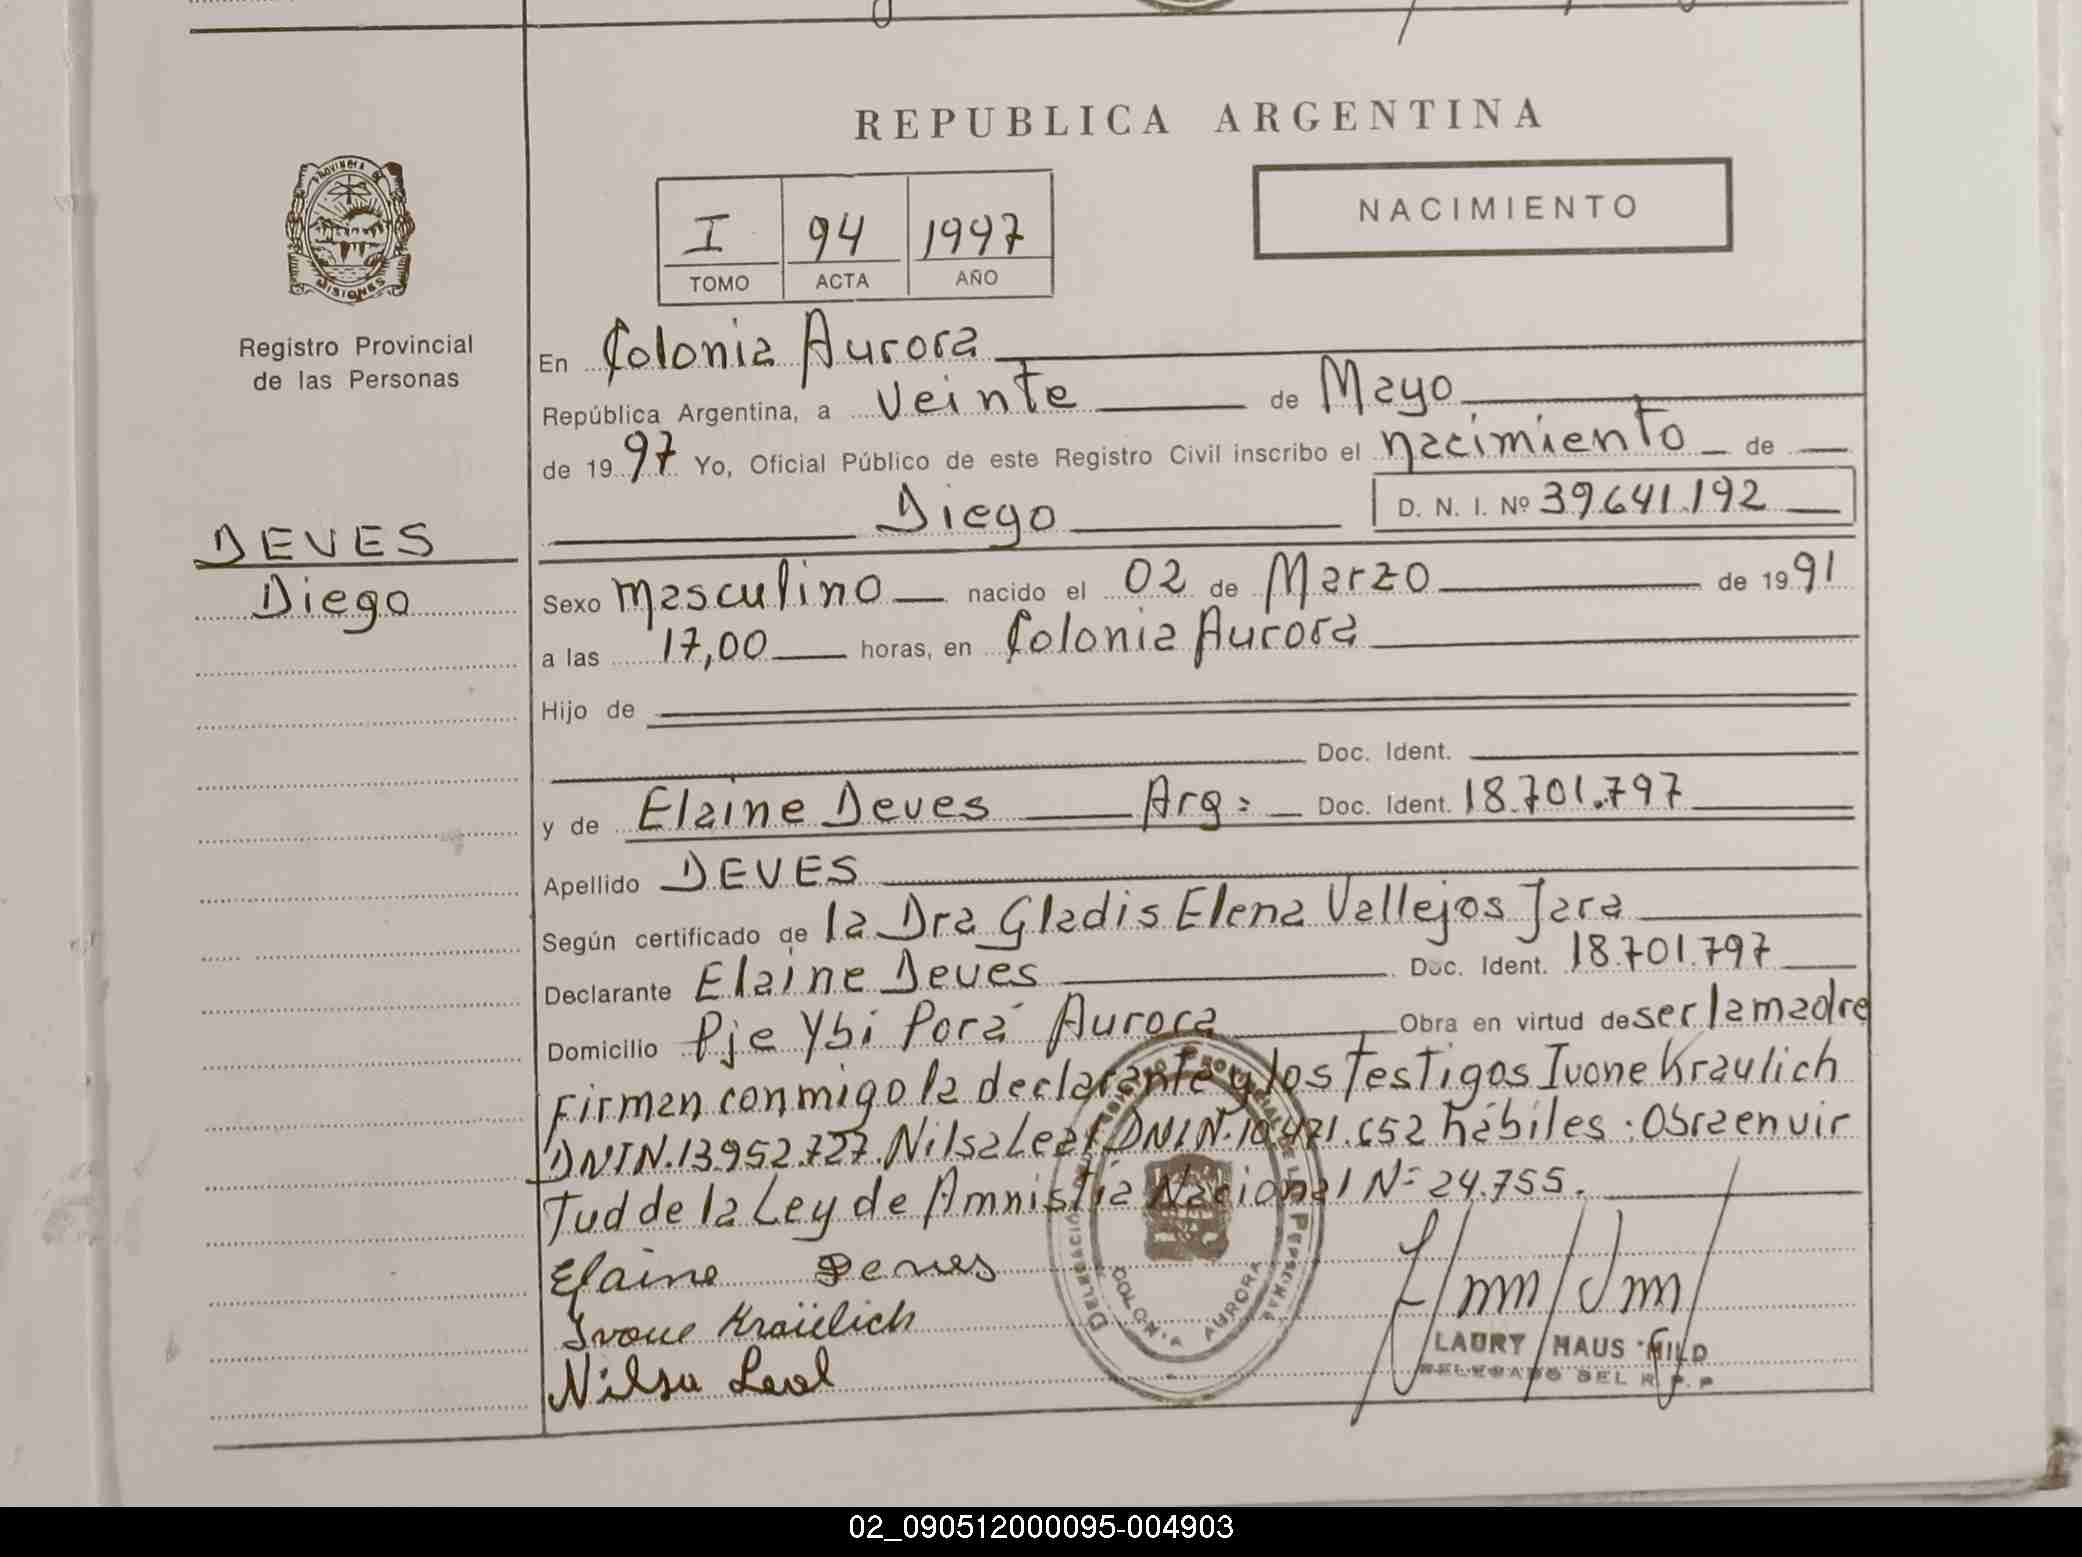 REPUBLICA ARGENTINA
PROVINCIA DE
MISIONES
Registro Provincial
de las Personas
I 94 1997
TOMO ACTA AÑO
NACIMIENTO
DEVES
Diego
En Colonia Aurora
República Argentina, a veinte de Mayo
de 1997 Yo, Oficial Público de este Registro Civil inscribo el nacimiento de
Diego D. N. I. Nº 39.641.192
Sexo masculino nacido el 02 de Marzo de 1991
a las 17,00 horas, en Colonia Aurora
Hijo de
Doc. Ident.
y de Elaine Deves Arg: Doc. Ident. 18.701.797
Apellido DEVES
Según certificado de la Dra Gladis Elena Vallejos Jara
Declarante Elaine Deves Doc. Ident. 18.701.797
Domicilio Pje Ybi Porá Aurora Obra en virtud de ser la madre
Firman conmigo la declarante y los Testigos Ivone Kraulich
DNI N. 13.952.727. Nilsa Leal DNI N. 10.471.652 hábiles. Obra en vir
Tud de la Ley de Amnistía Nacional Nº 24.755.
Elaine Deves
Ivone Kraülich
Nilsa Leal
COLONIA AURORA
LAURY HAUS HILD
DELEGADO DEL R.P.P
02_090512000095-004903